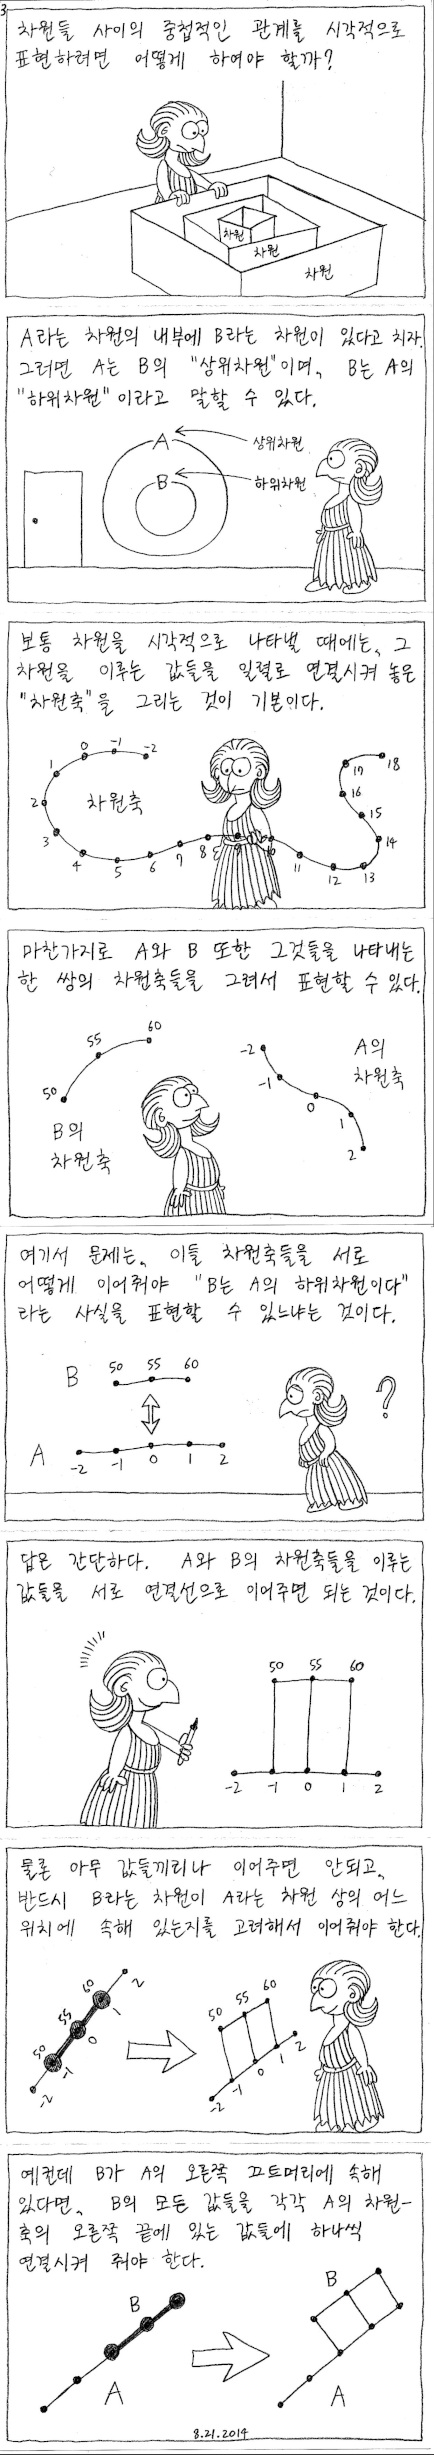 3
차원들 사이의 중첩적인 관계를 시각적으로
표현하려면 어떻게 하여야 할까?
차원
차원
차원
A라는 차원의 내부에 B라는 차원이 있다고 치자.
그러면 A는 B의 "상위차원"이며, B는 A의
"하위차원"이라고 말할 수 있다.
A
상위차원
B
하위차원
보통 차원을 시각적으로 나타낼 때에는, 그
차원을 이루는 값들을 일렬로 연결시켜 놓은
"차원축"을 그리는 것이 기본이다.
-2
-1
0
1
2
3
4
5
6
7
8
10
11
12
13
14
15
16
17
18
차원축
마찬가지로 A와 B 또한 그것들을 나타내는
한 쌍의 차원축들을 그려서 표현할 수 있다.
50
55
60
B의
차원축
-2
-1
0
1
2
A의
차원축
여기서 문제는, 이들 차원축들을 서로
어떻게 이어줘야 "B는 A의 하위차원이다"
라는 사실을 표현할 수 있느냐는 것이다.
B 50 55 60
A -2 -1 0 1 2
?
답은 간단하다. A와 B의 차원축들을 이루는
값들을 서로 연결선으로 이어주면 되는 것이다.
50 55 60
-2 -1 0 1 2
물론 아무 값들끼리나 이어주면 안되고,
반드시 B라는 차원이 A라는 차원 상의 어느
위치에 속해 있는지를 고려해서 이어줘야 한다.
50 55 60
-2 -1 0 1 2
50 55 60
-2 -1 0 1 2
예컨데 B가 A의 오른쪽 끄트머리에 속해
있다면, B의 모든 값들을 각각 A의 차원-
축의 오른쪽 끝에 있는 값들에 하나씩
연결시켜 줘야 한다.
B
A
B
A
8.21.2014